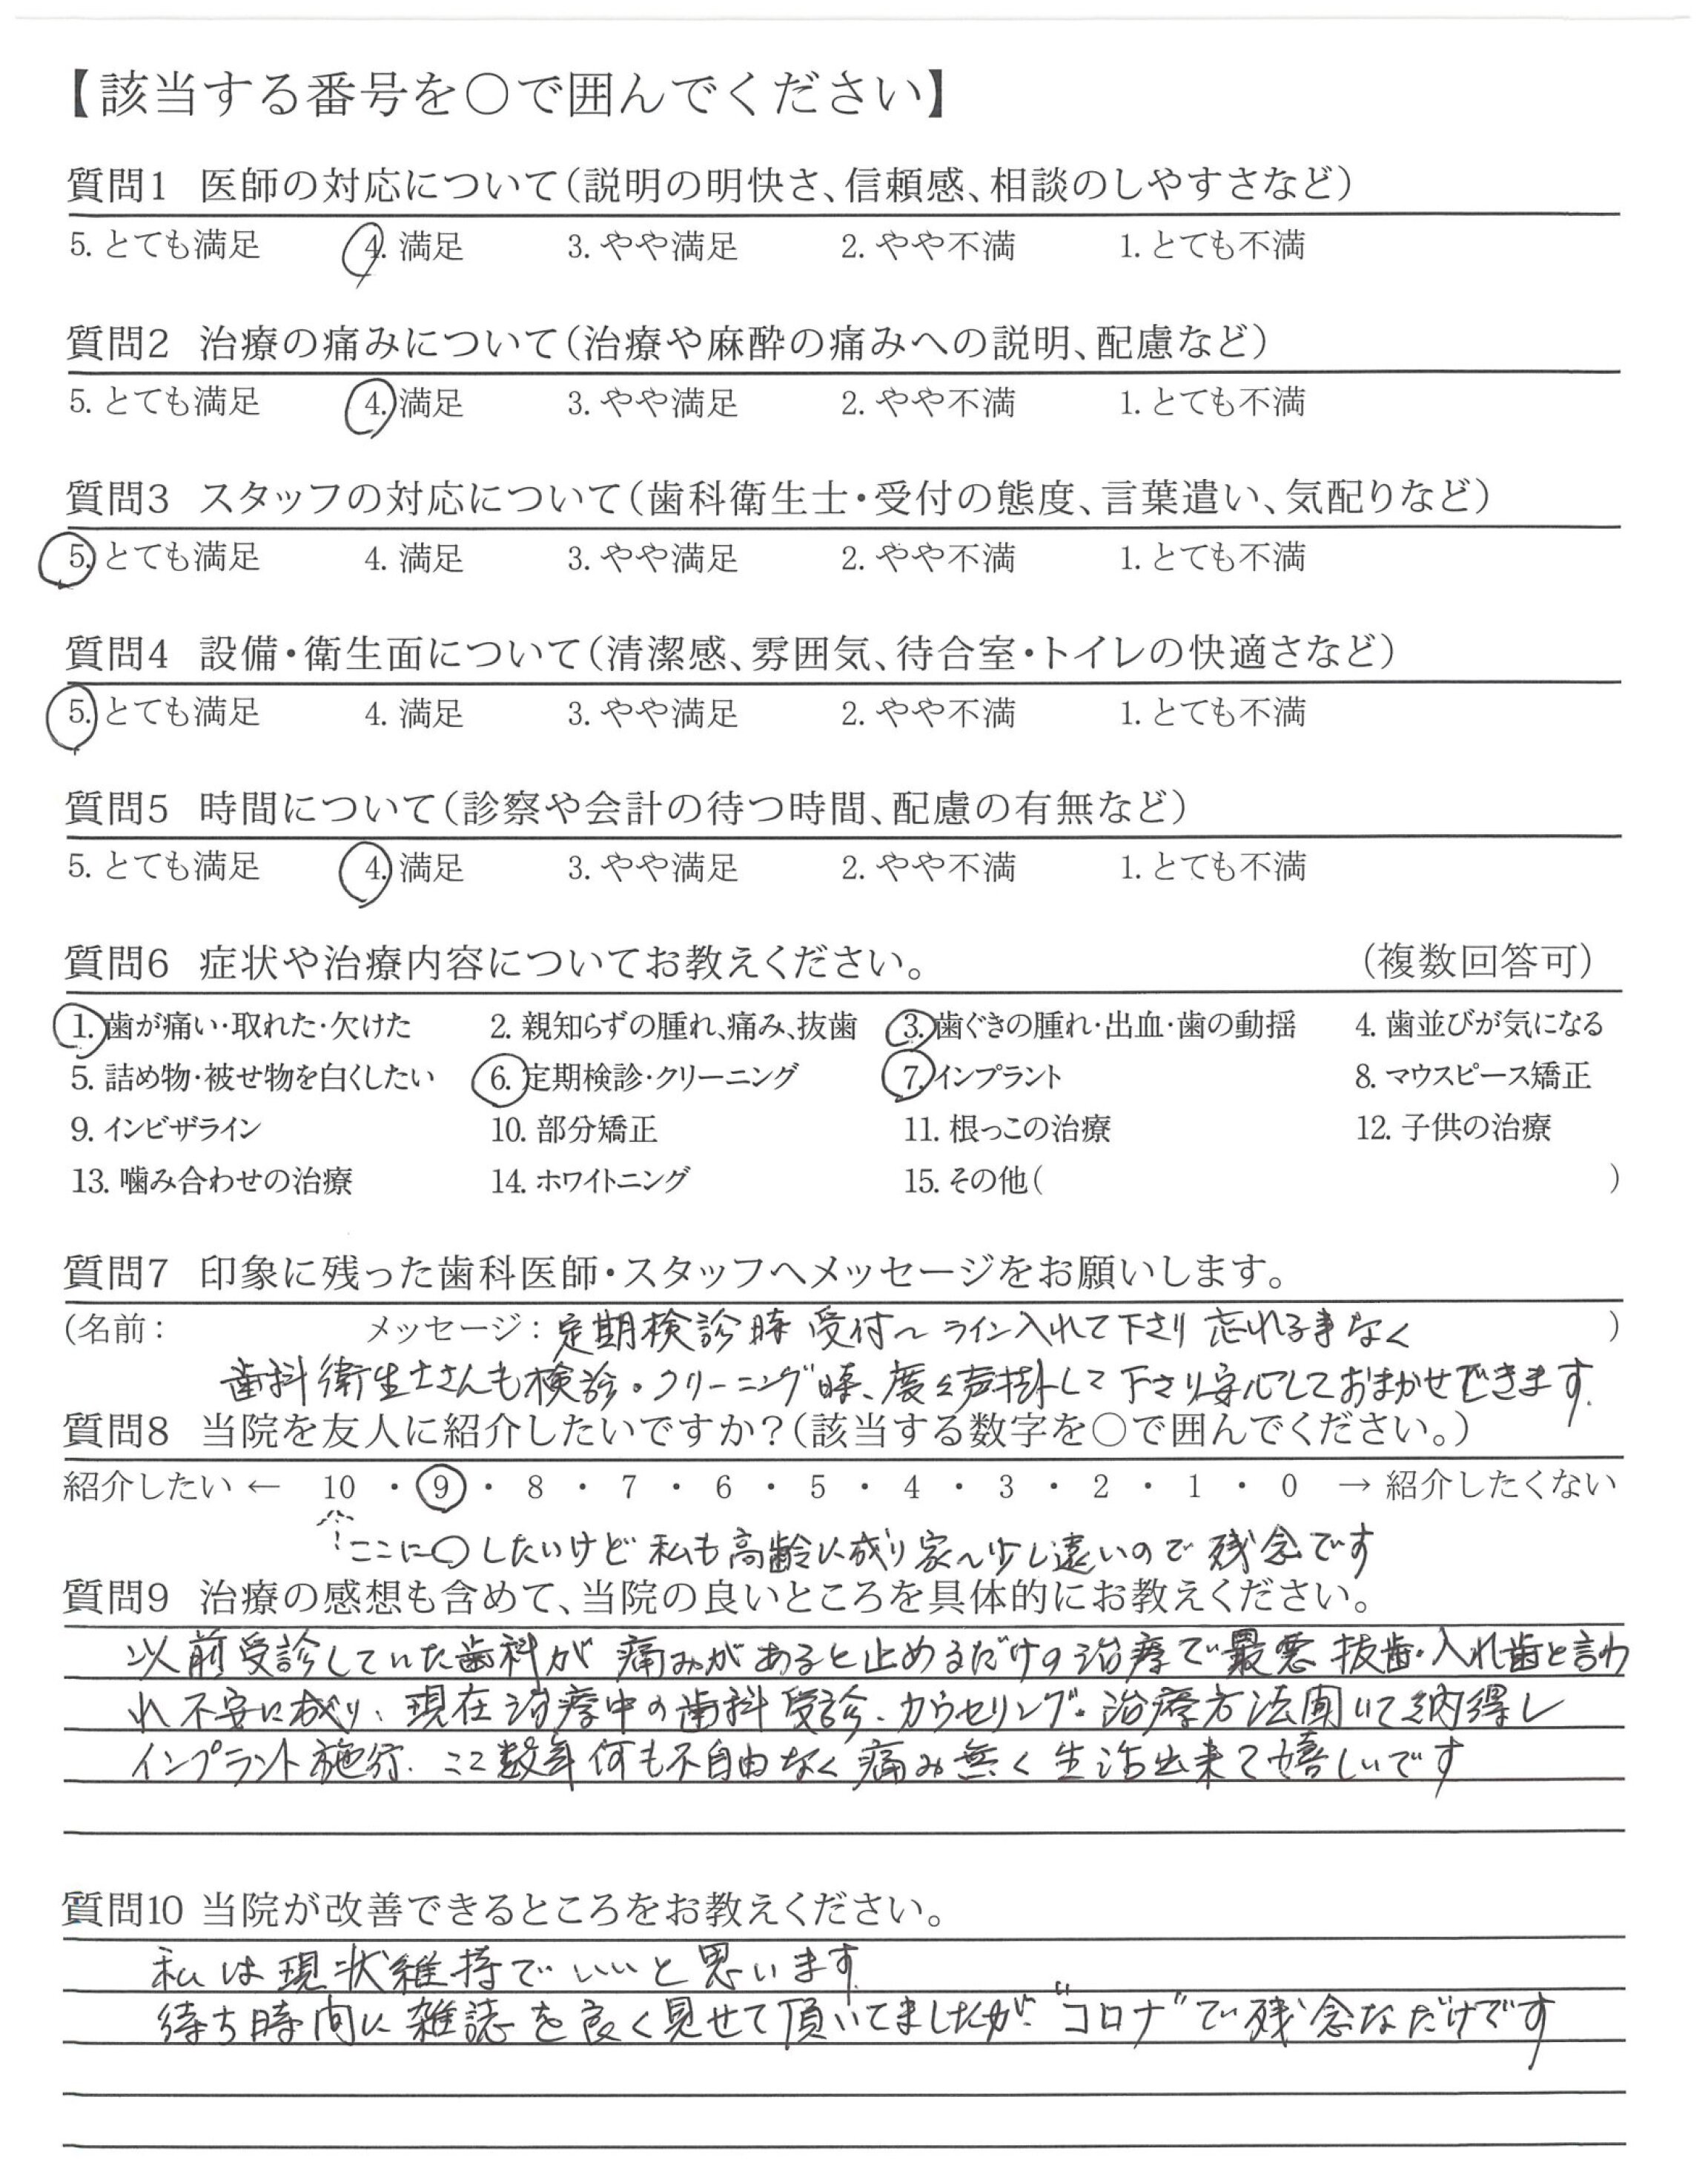 【該当する番号を○で囲んでください】
質問1 医師の対応について(説明の明快さ、信頼感、相談のしやすさなど)
5. とても満足 4. 満足 3. やや満足 2. やや不満 1. とても不満
質問2 治療の痛みについて(治療や麻酔の痛みへの説明、配慮など)
5. とても満足 4. 満足 3. やや満足 2. やや不満 1. とても不満
質問3 スタッフの対応について(歯科衛生士・受付の態度、言葉遣い、気配りなど)
5. とても満足 4. 満足 3. やや満足 2. やや不満 1. とても不満
質問4 設備・衛生面について(清潔感、雰囲気、待合室・トイレの快適さなど)
5. とても満足 4. 満足 3. やや満足 2. やや不満 1. とても不満
質問5 時間について(診察や会計の待つ時間、配慮の有無など)
5. とても満足 4. 満足 3. やや満足 2. やや不満 1. とても不満
質問6 症状や治療内容についてお教えください。 (複数回答可)
1. 歯が痛い・取れた・欠けた 2. 親知らずの腫れ、痛み、抜歯 3. 歯ぐきの腫れ・出血・歯の動揺 4. 歯並びが気になる
5. 詰め物・被せ物を白くしたい 6. 定期検診・クリーニング 7. インプラント 8. マウスピース矯正
9. インビザライン 10. 部分矯正 11. 根っこの治療 12. 子供の治療
13. 噛み合わせの治療 14. ホワイトニング 15. その他( )
質問7 印象に残った歯科医師・スタッフへメッセージをお願いします。
(名前: メッセージ: 定期検診時 受付〜ライン入れて下さり 忘れる事なく )
歯科衛生士さんも検診・クリーニング時、度々声掛して下さり安心しておまかせできます。
質問8 当院を友人に紹介したいですか?(該当する数字を○で囲んでください。)
紹介したい ← 10 ・ 9 ・ 8 ・ 7 ・ 6 ・ 5 ・ 4 ・ 3 ・ 2 ・ 1 ・ 0 → 紹介したくない
ここに○したいけど 私も高齢に成り家〜少し遠いので 残念です
質問9 治療の感想も含めて、当院の良いところを具体的にお教えください。
以前受診していた歯科が 痛みがあると止めるだけの治療で最悪 抜歯・入れ歯と言わ
れ不安に成り、現在治療中の歯科受診、カウセリング・治療方法聞いて納得し
インプラント施行. ここ数年何も不自由なく痛み無く生活出来て嬉しいです
質問10 当院が改善できるところをお教えください。
私は現状維持でいいと思います
待ち時間に雑誌を良く見せて頂いてましたが、"コロナ"で残念なだけです